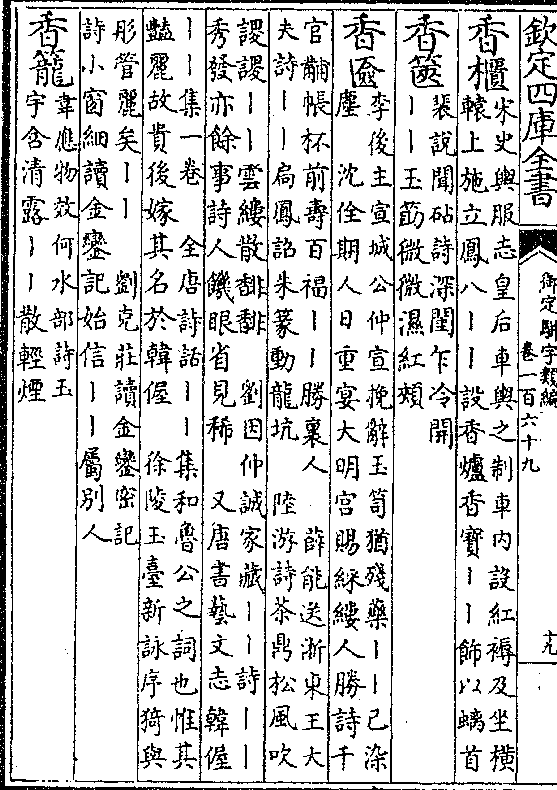 欽定四庫全書
御定駢字類編
卷一百六十九
十九
香櫃
宋史輿服志皇后車輿之制車内設紅褥及坐横
轅上施立鳳八丨丨設香爐香寶丨丨飾以螭首
香篋
裴說聞砧詩深閨乍冷開
丨丨玉筯微微濕紅頰
香匳
李後主宣城公仲宣挽辭玉笥猶殘藥丨丨已染
塵 沈佺期人日重宴大明宫賜綵縷人勝詩千
官黼帳杯前壽百福丨丨勝裏人 薛能送浙東王大
夫詩丨丨扃鳳詔朱篆動龍坑 陸游詩茶鼎松風吹
謖謖丨丨雲縷散馡馡 劉因仲誠家藏丨丨詩丨丨
秀發亦餘事詩人饞眼省見稀 又唐書藝文志韓偓
丨丨集一卷 全唐詩話丨丨集和魯公之詞也惟其
豔麗故貴後嫁其名於韓偓 徐陵玉臺新詠序猗與
彤管麗矣丨丨 劉克莊讀金鑾密記
詩小窗細讀金鑾記始信丨丨屬別人
香籠
韋應物效何水部詩玉
宇含清露丨丨散輕煙